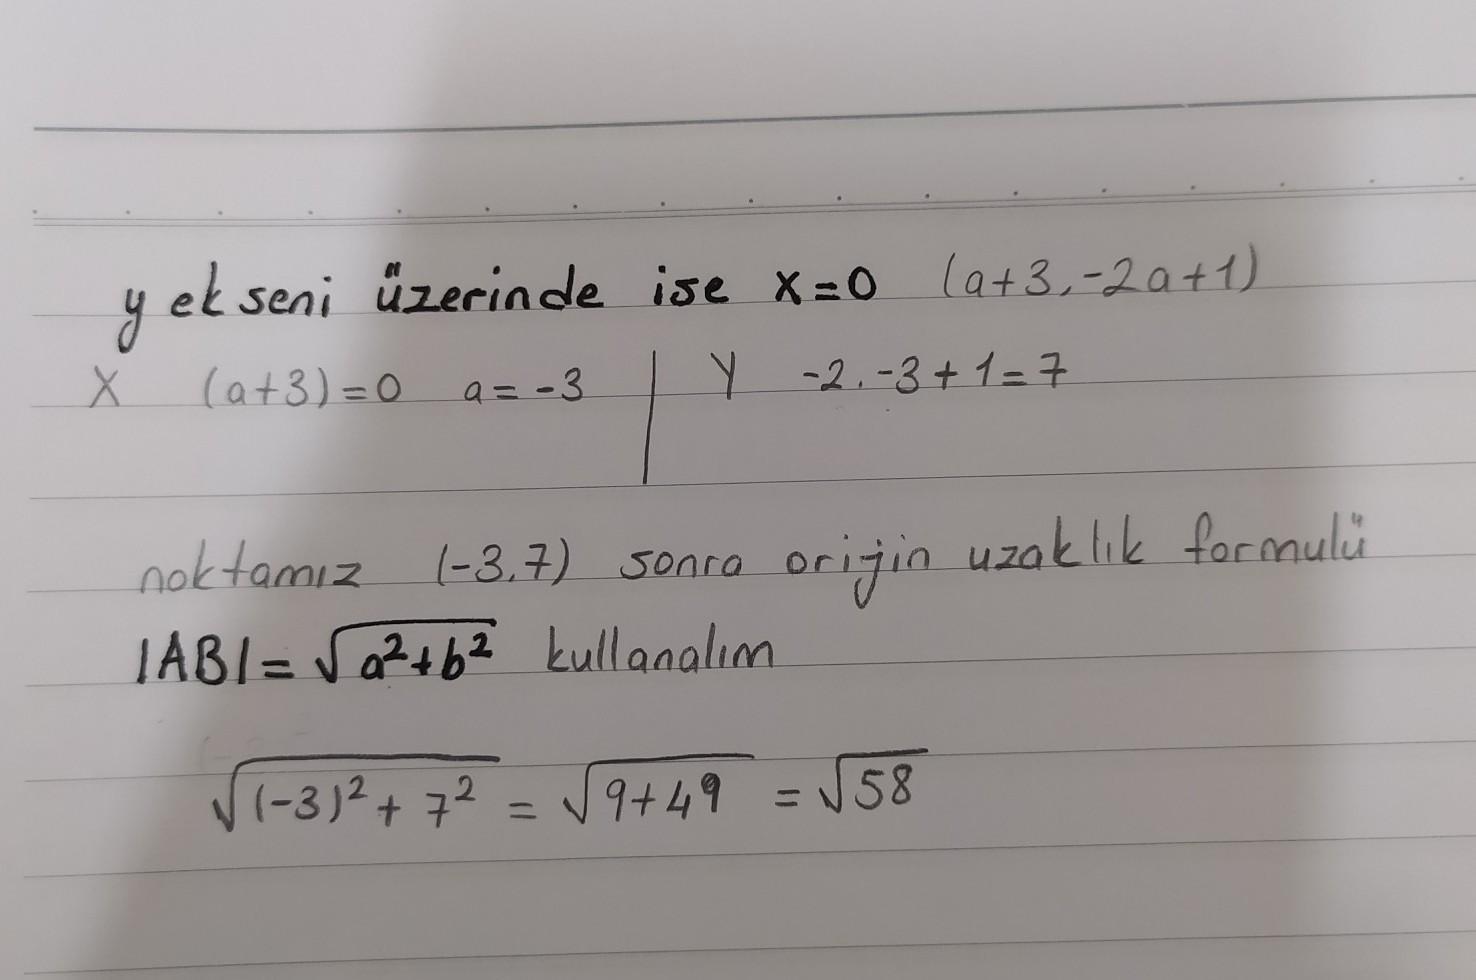 y ekseni üzerinde ise x=0 (a+3,-2a+1)
X (a+3)=0 a=-3 | Y -2.-3+1=7
noktamız (-3,7) sonra orijin uzaklık formulü
|AB|=√a²+b² kullanalım
√(-3)²+7² = √9+49 = √58